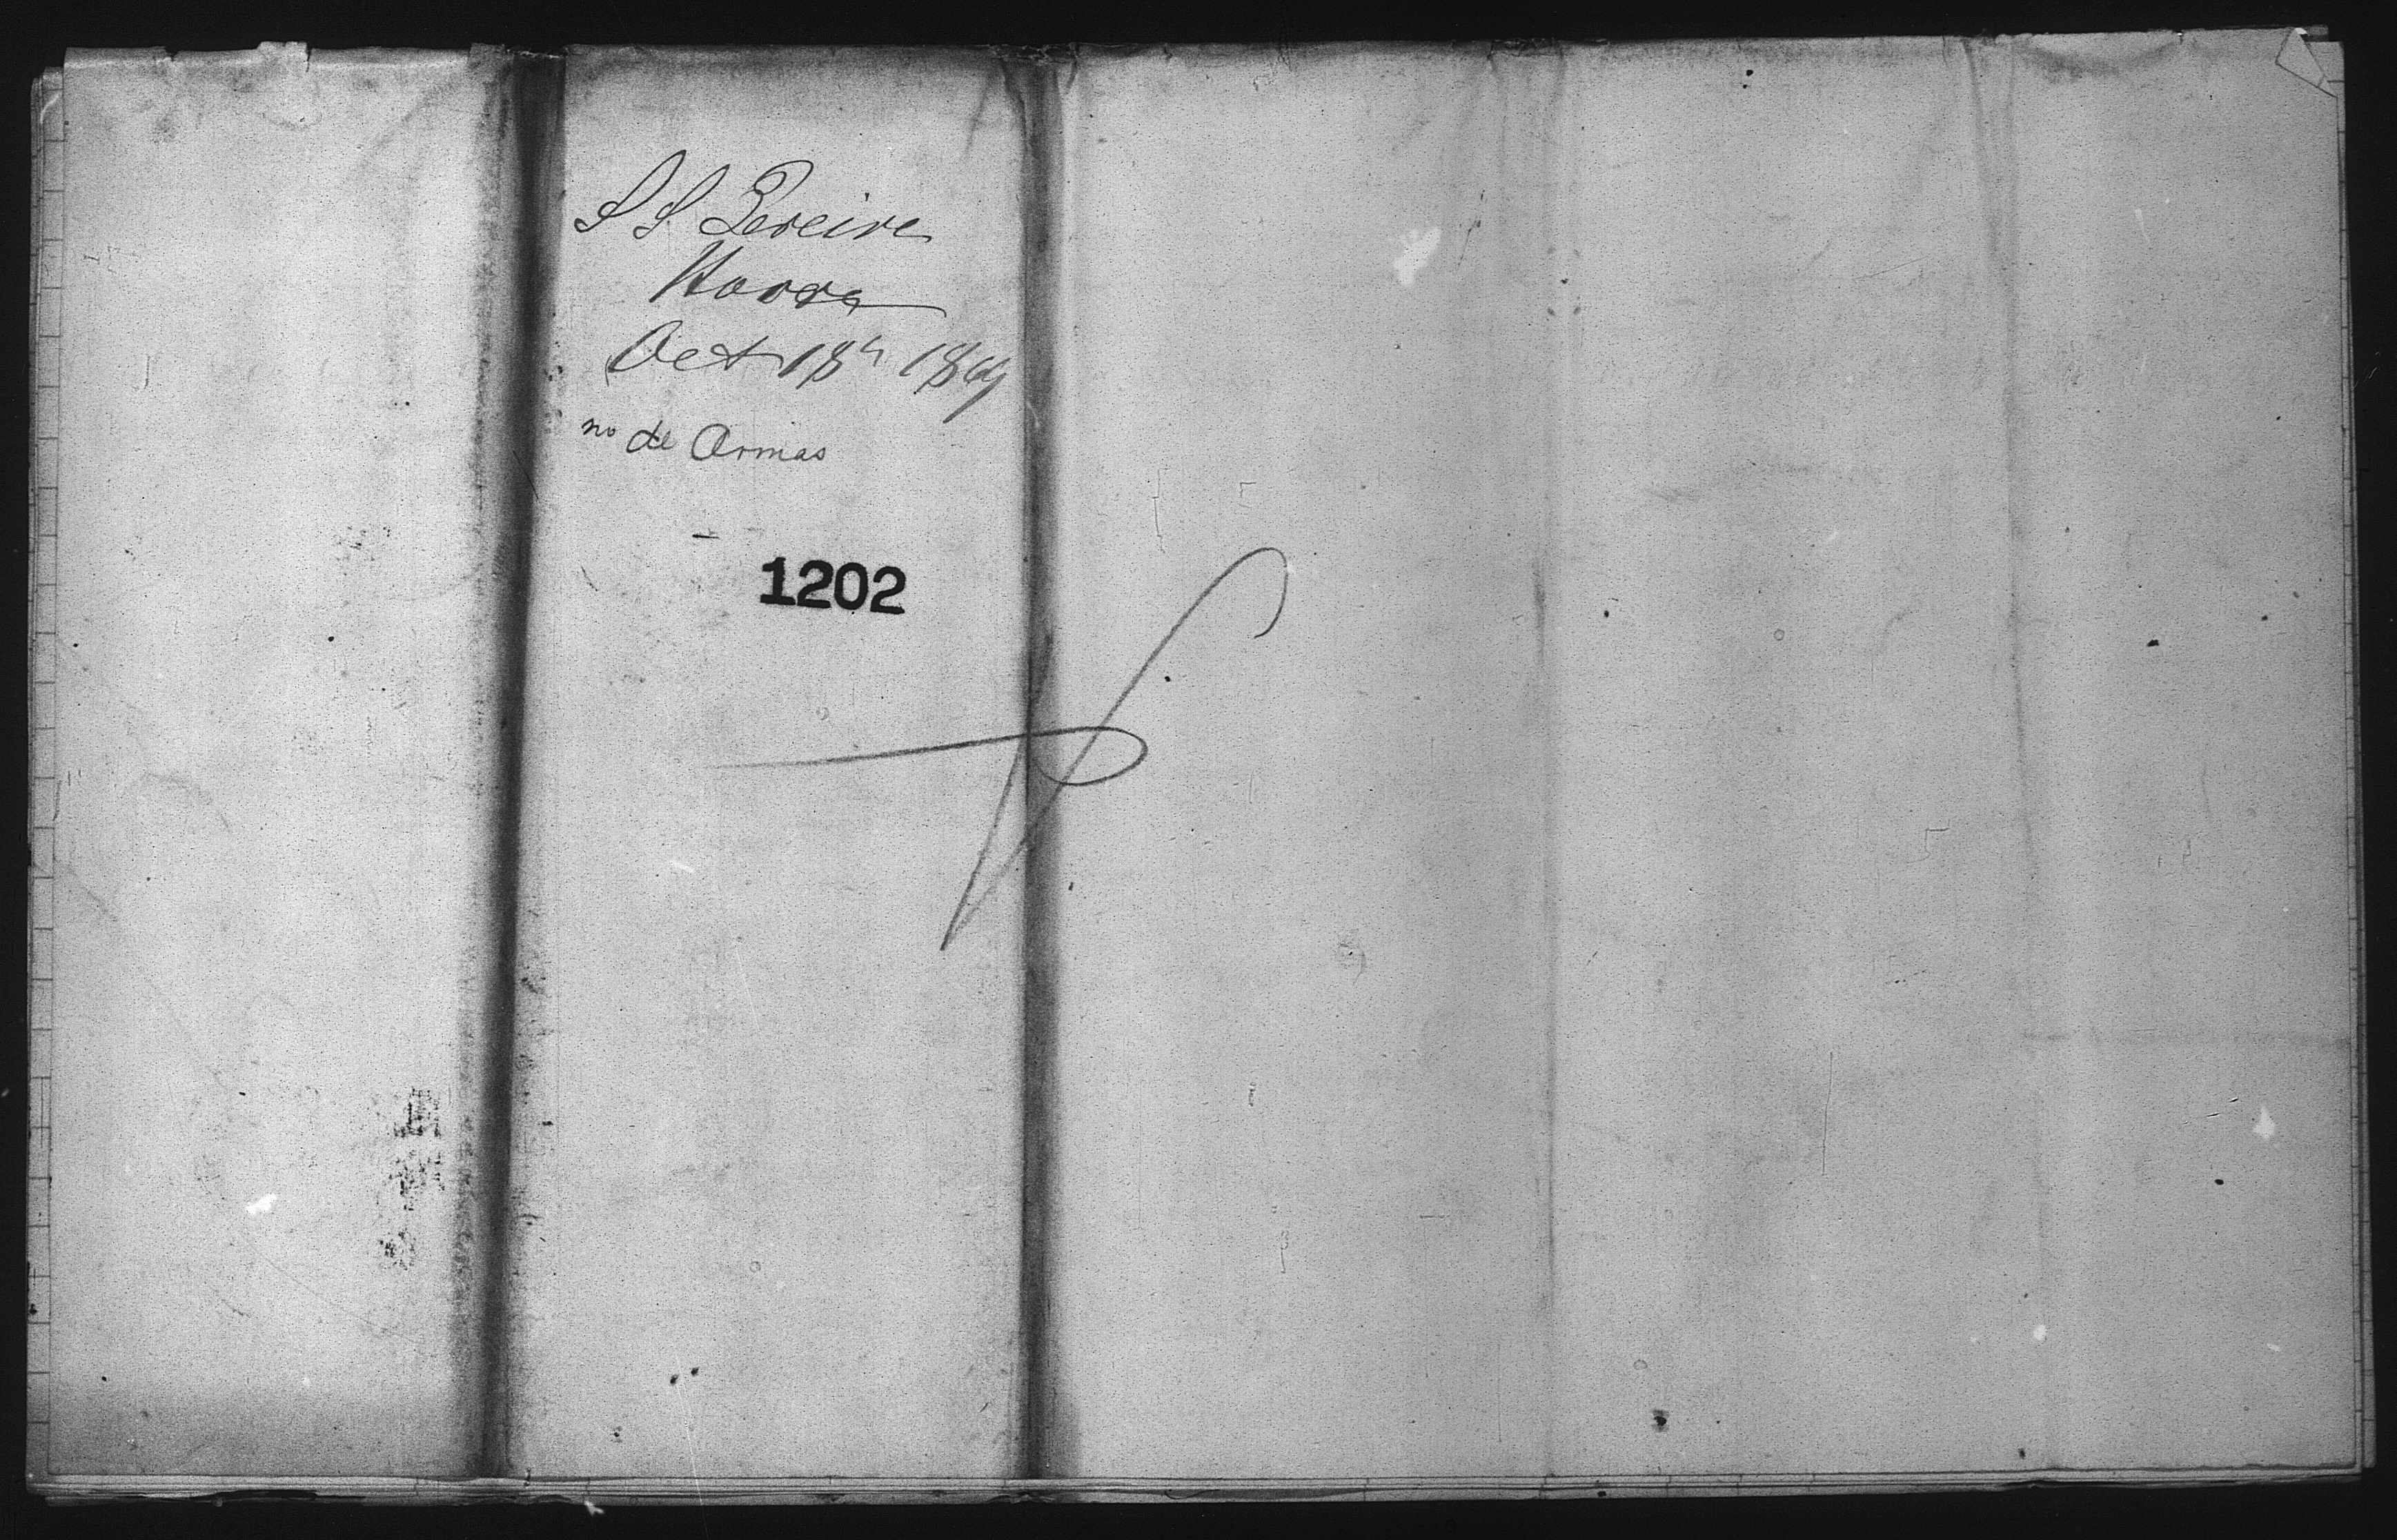 S S Pereire
Havre
Oct 18th 1869
no de Armas
1202